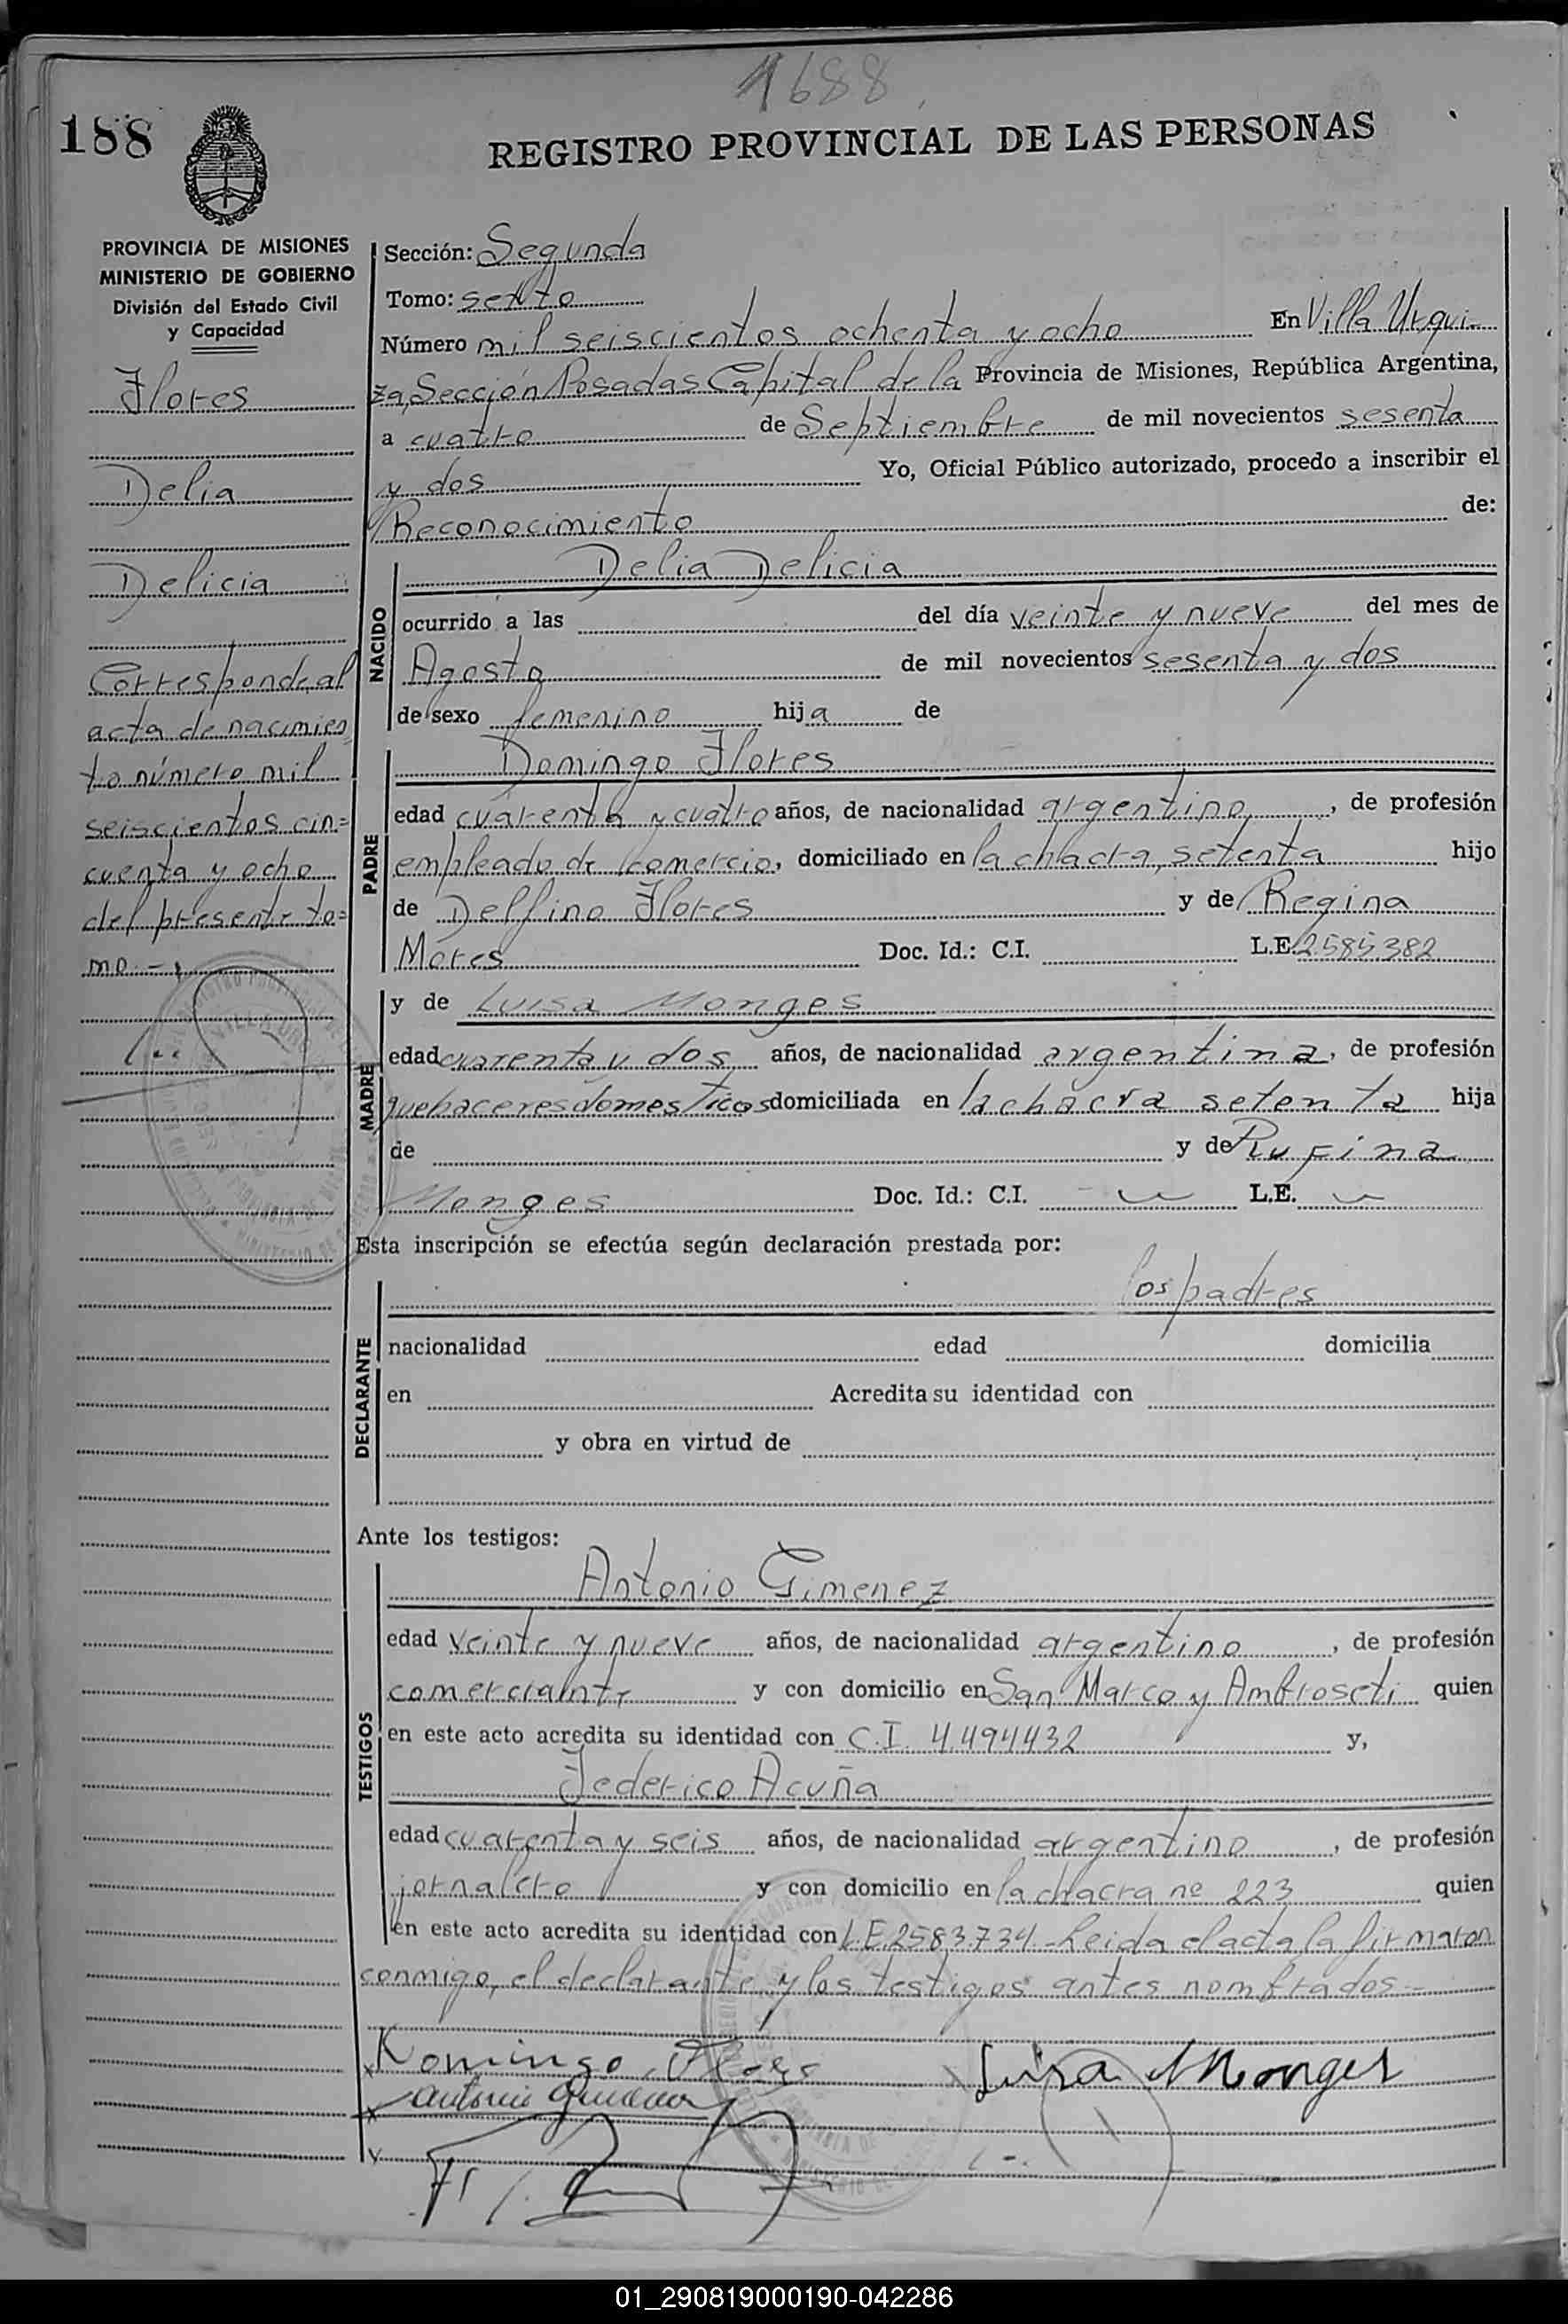 1688
188
REGISTRO PROVINCIAL DE LAS PERSONAS
PROVINCIA DE MISIONES
MINISTERIO DE GOBIERNO
División del Estado Civil
y Capacidad
Flores
Delia
Delicia
Corresponde al
acta de nacimien
to número mil
seiscientos cin=
cuenta y ocho
del presente to=
mo.-
Sección: Segunda
Tomo: sexto
Número mil seiscientos ochenta y ocho En Villa Urqui-
za, Sección Posadas Capital de la Provincia de Misiones, República Argentina,
a cuatro de Septiembre de mil novecientos sesenta
y dos Yo, Oficial Público autorizado, procedo a inscribir el
Reconocimiento de:
NACIDO
Delia Delicia
ocurrido a las del día veinte y nueve del mes de
Agosto de mil novecientos sesenta y dos
de sexo femenino hija de
PADRE
Domingo Flores
edad cuarenta y cuatro años, de nacionalidad argentino, de profesión
empleado de comercio, domiciliado en la chacra, setenta hijo
de Delfino Flores y de Regina
Mores Doc. Id.: C.I. L.E. 2.585.382
MADRE
y de Luisa Monges
edad cuarenta y dos años, de nacionalidad argentina, de profesión
quehaceres domesticos domiciliada en la chacra setenta hija
de y de Rufina
Monges Doc. Id.: C.I. L.E.
Esta inscripción se efectúa según declaración prestada por:
DECLARANTE
los padres
nacionalidad edad domicilia
en Acredita su identidad con
y obra en virtud de
Ante los testigos:
TESTIGOS
Antonio Gimenez
edad veinte y nueve años, de nacionalidad argentino, de profesión
comerciante y con domicilio en San Marco y Ambroseti quien
en este acto acredita su identidad con C.I. 4.494432 y,
Federico Acuña
edad cuarenta y seis años, de nacionalidad argentino, de profesión
jornalero y con domicilio en la chacra nº 223 quien
en este acto acredita su identidad con L.E 2583.734.- Leida el acta, la firmaron
conmigo, el declarante y los testigos antes nombrados-
Domingo Flores Luisa Monges
Antonio Gimenez
01_290819000190-042286